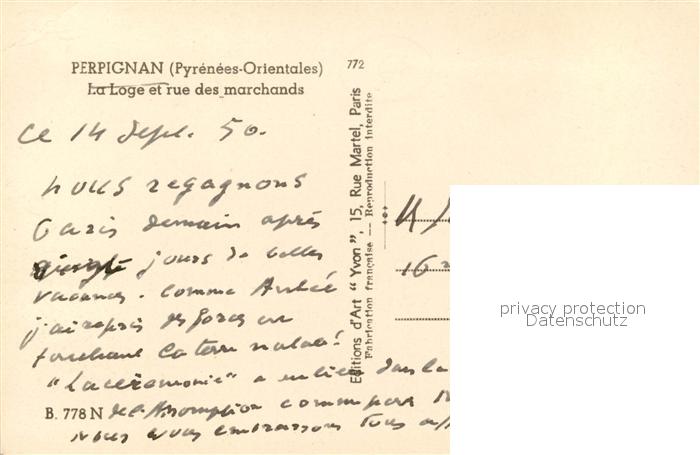 PERPIGNAN (Pyrénées-Orientales)
La Loge et rue des marchands
772
ce 14 Sept. 50.
nous regagnons
Paris demain après
jours de belles
vacances. Comme Antée
j'ai repris des forces en
touchant la terre natale!
"La cérémonie" a eu lieu dans la
B. 778 N
de l'Assomption comme pour
nous vous embrassons tous
Editions d'Art "Yvon", 15, Rue Martel, Paris
Fabrication française — Reproduction interdite
16
privacy protection
Datenschutz